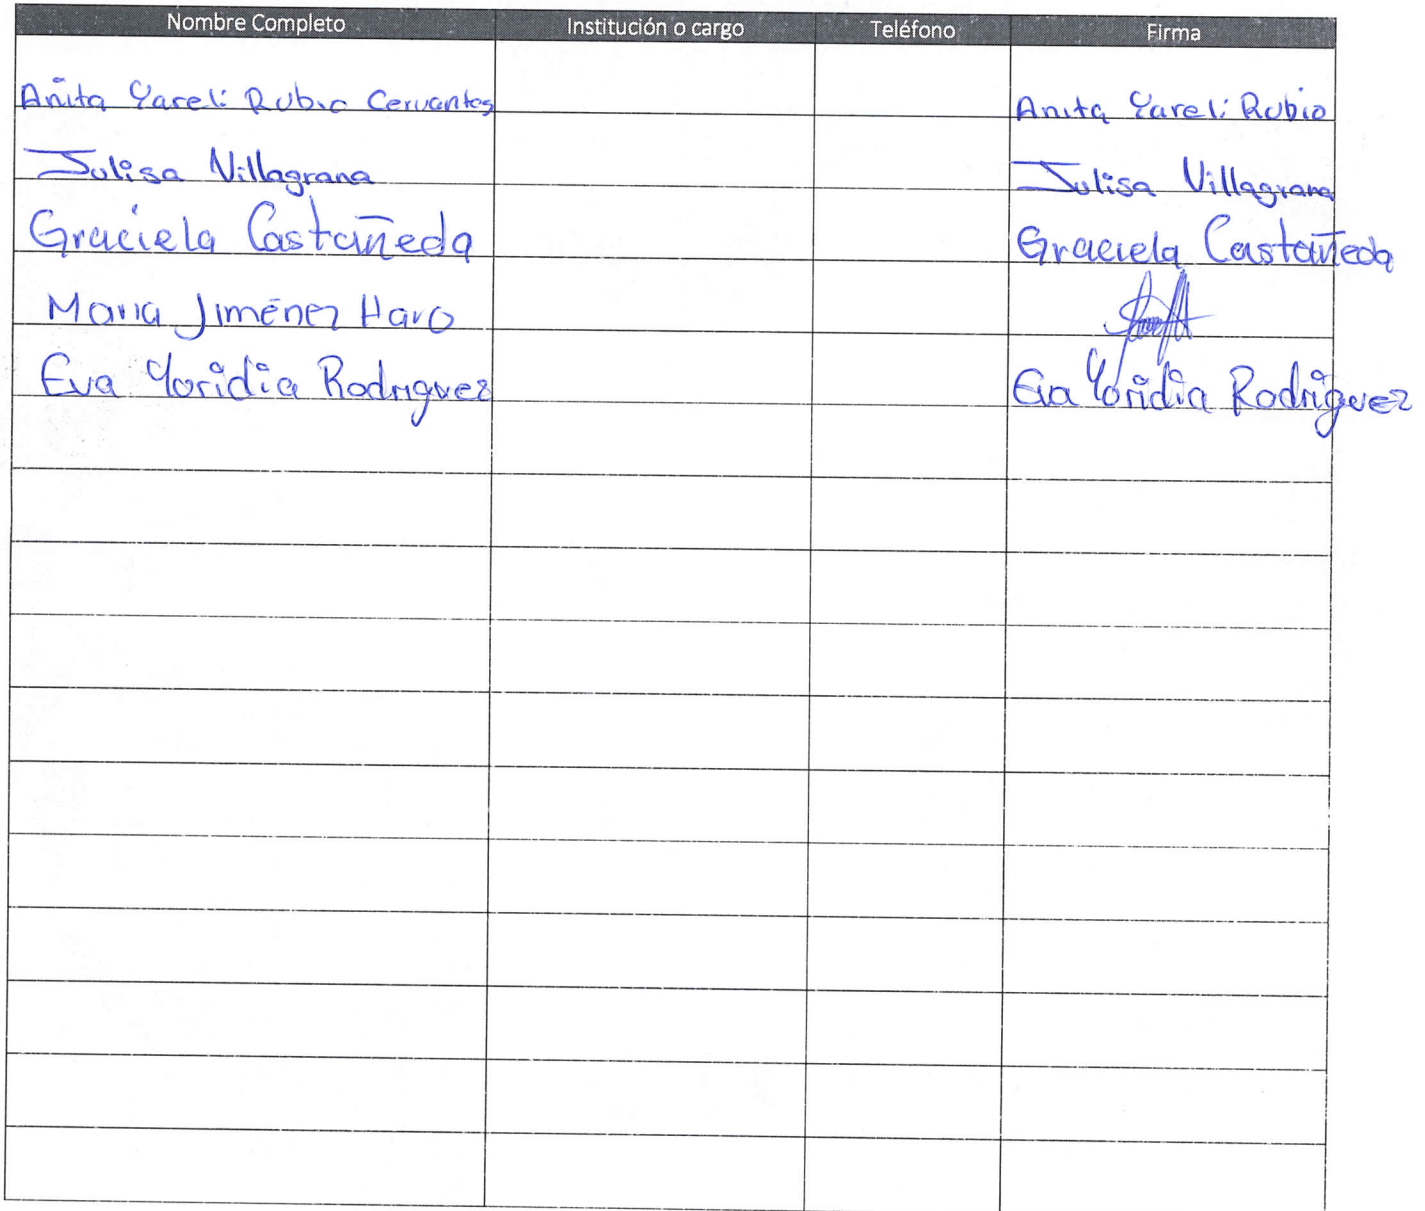 Nombre Completo Institución o cargo Teléfono Firma
Anita Yareli Rubio Cervantes Anita Yareli Rubio
Julisa Villagrana Julisa Villagrana
Graciela Castañeda Graciela Castañeda
Maria Jiménez Haro
Eva Yoridia Rodriguez Eva Yoridia Rodriguez